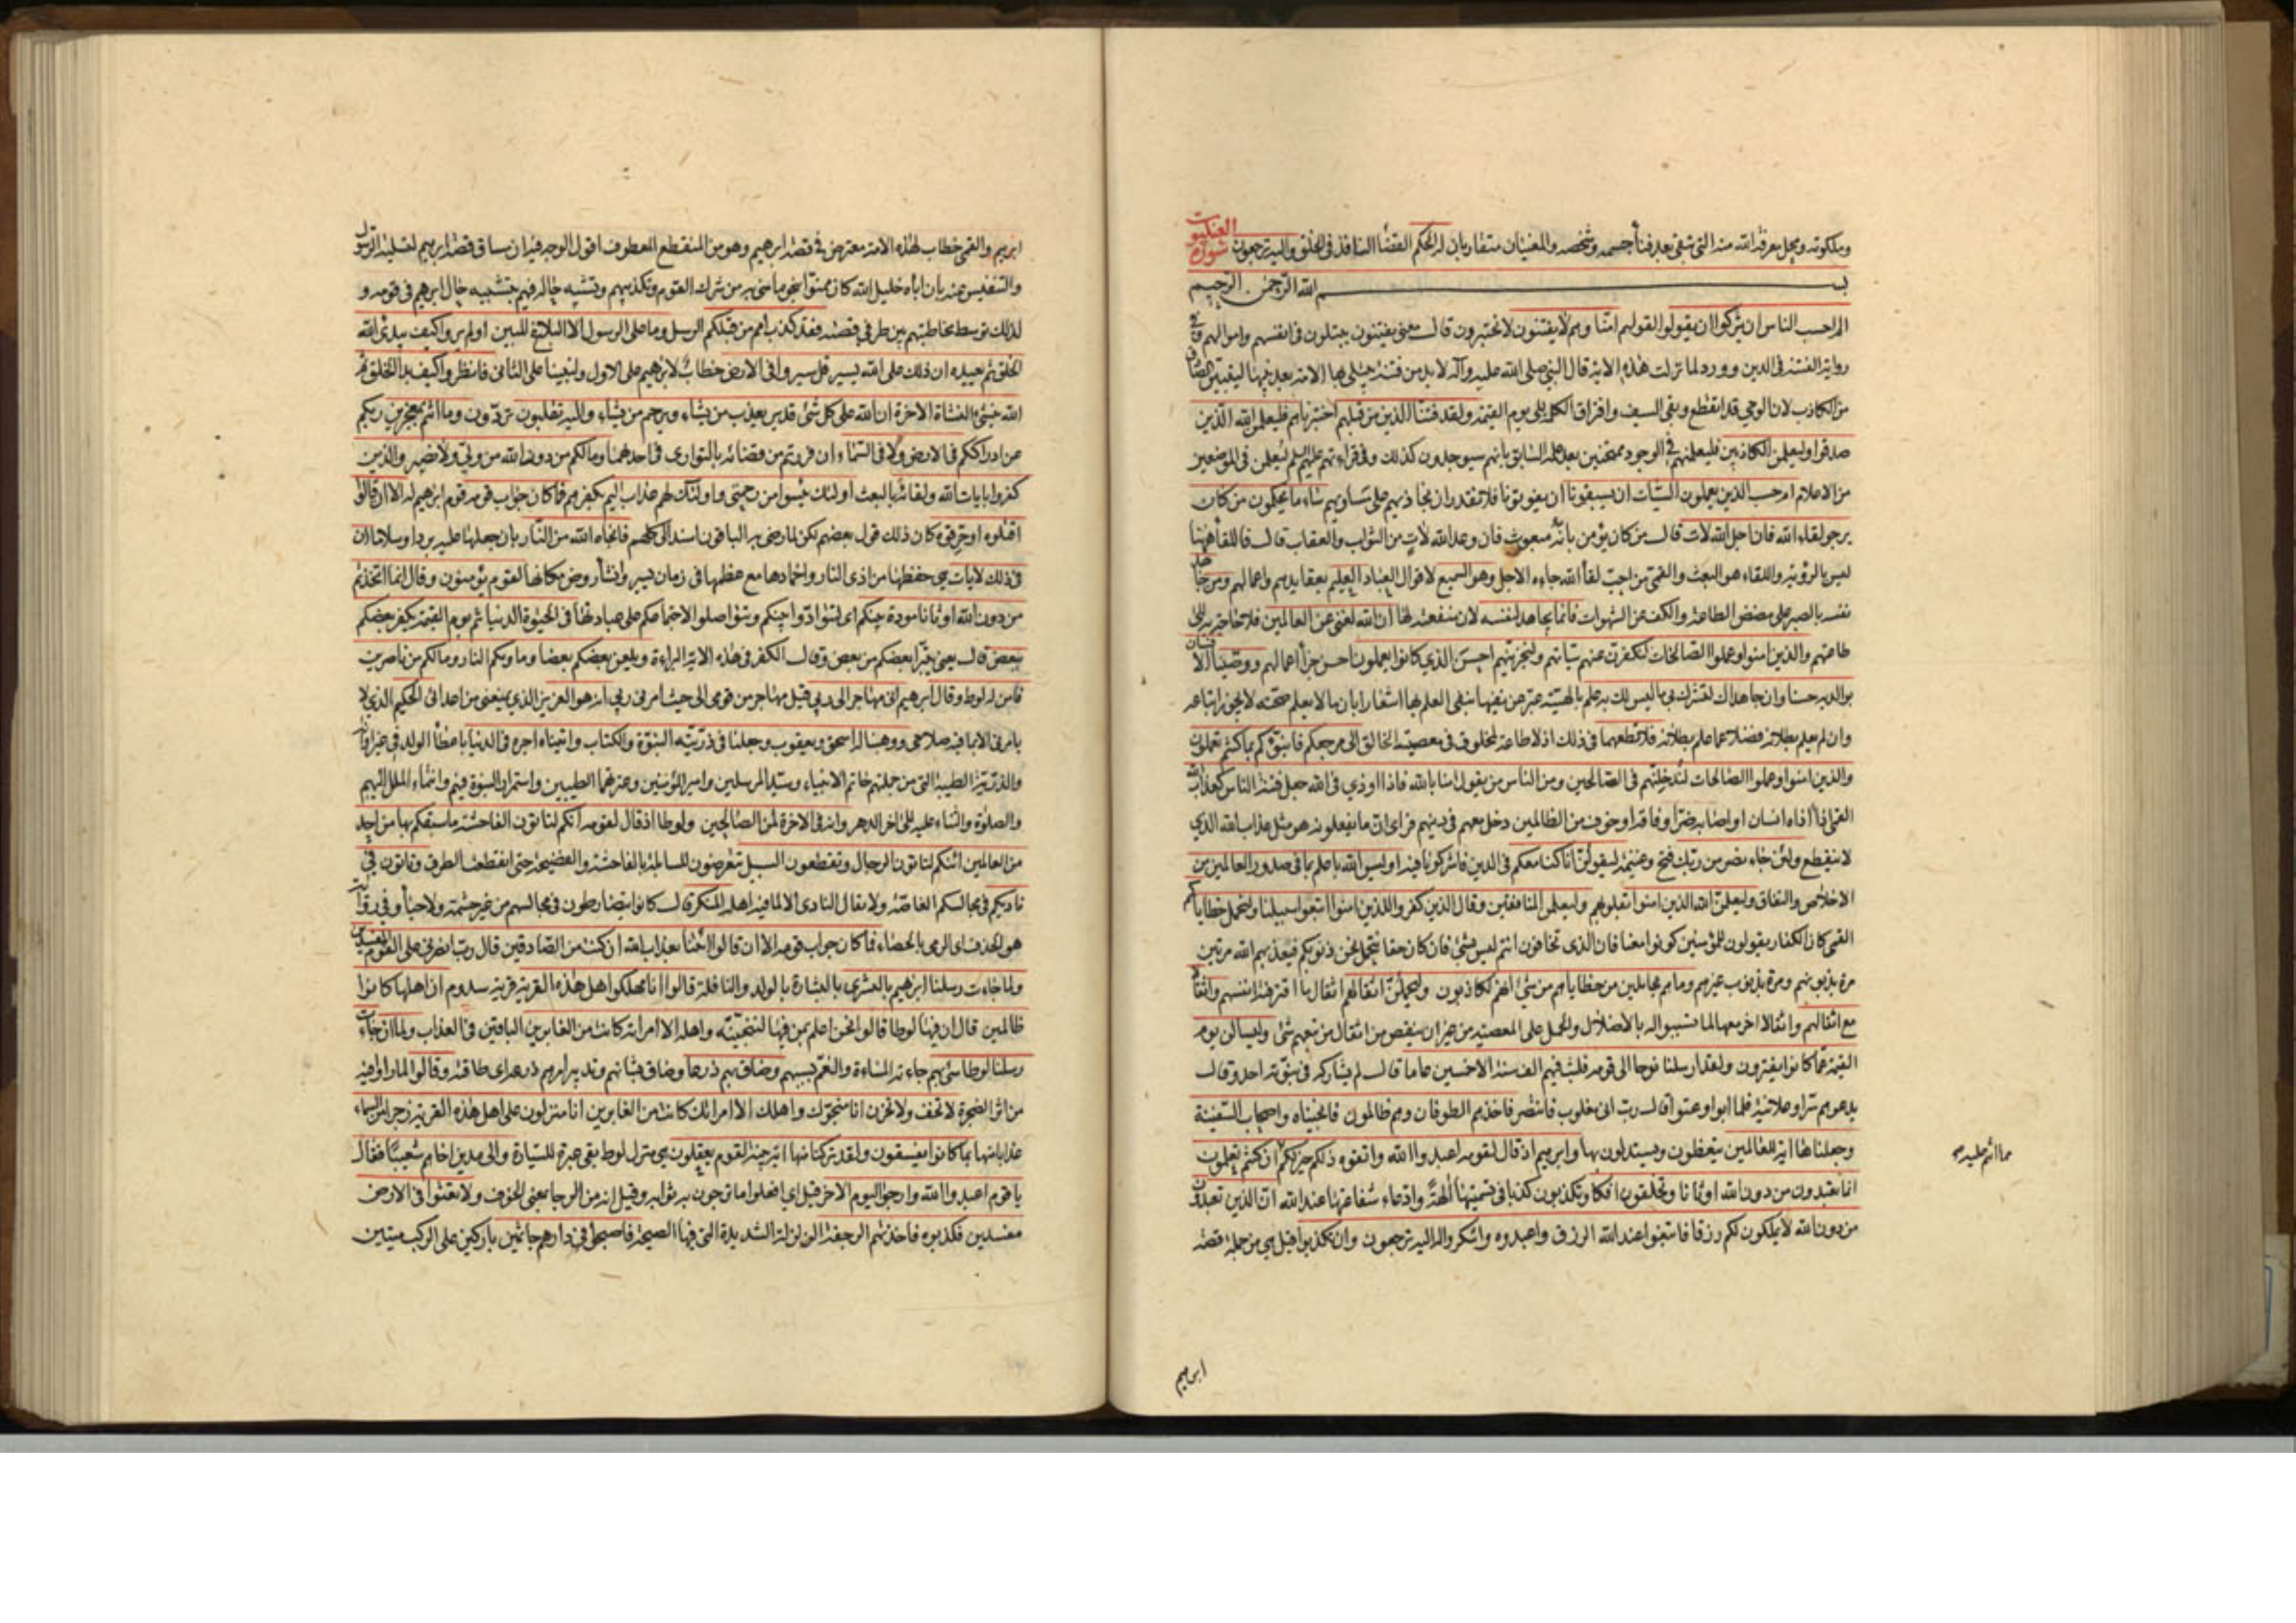 وملكوته ومحل معرفة الله منه التي تبقى بعد فناء جسمه وشخصه والمعنيان متقاربان له الحكم القضاء النافذ في الخلق واليه ترجعون
سورة العنكبوت
بسم الله الرحمن الرحيم
الم احسب الناس ان يتركوا ان يقولوا لقولهم امنا وهم لا يفتنون لا يختبرون قال معنى يفتنون يبتلون في انفسهم واموالهم وفي
رواية الفتنة في الدين وورد لما نزلت هذه الاية قال النبي صلى الله عليه وآله لا بد من فتنة يبتلى بها الامة بعد نبيها ليتعين الصادق
من الكاذب لان الوحي قد انقطع وبقي السيف وافتراق الكلمة الى يوم القيمة ولقد فتنا الذين من قبلهم اختبرناهم فليعلمن الله الذين
صدقوا وليعلمن الكاذبين فليعلمنهم في الوجود ممتحنين بعد علمه السابق بانهم سيوجدون كذلك وفي قراءتهم عليهم السلم ليعلمن في الموضعين
من الاعلام ام حسب الذين يعملون السيئات ان يسبقونا ان يفوتونا فلا نقدر ان نجازيهم على مساويهم ساء ما يحكمون من كان
يرجو لقاء الله فان اجل الله لات قال من كان يؤمن بانه مبعوث فان وعد الله لات من الثواب والعقاب قال فاللقاء ههنا
ليس بالرؤية واللقاء هو البعث والقمي من احب لقاء الله جاءه الاجل وهو السميع لاقوال العباد العليم بعقايدهم واعمالهم ومن جاهد
نفسه بالصبر على مضض الطاعة والكف عن الشهوات فانما يجاهد لنفسه لان منفعته لها ان الله لغني عن العالمين فلا حاجة به الى
طاعتهم والذين امنوا وعملوا الصالحات لنكفرن عنهم سيئاتهم ولنجزينهم احسن الذي كانوا يعملون احسن جزاء اعمالهم ووصينا الانسان
بوالديه حسنا وان جاهداك لتشرك بي ما ليس لك به علم بالهيته عبر عن نفيها بنفي العلم بها اشعارا بان ما لا يعلم صحته لا يجوز اتباعه
وان لم يعلم بطلانه فضلا عما علم بطلانه فلا تطعهما في ذلك اذ لا طاعة لمخلوق في معصية الخالق الي مرجعكم فانبئكم بما كنتم تعملون
والذين امنوا وعملوا الصالحات لندخلنهم في الصالحين ومن الناس من يقول امنا بالله فاذا اوذي في الله جعل فتنة الناس كعذاب الله
القمي اذا اذاه انسان او اصابه ضر او فاقة او خوف من الظالمين دخل معهم في دينهم فراى ان ما يفعلونه هو مثل عذاب الله الذي
لا ينقطع ولئن جاء نصر من ربك فتح وغنيمة ليقولن انا كنا معكم في الدين فاشركونا فيه اوليس الله باعلم بما في صدور العالمين من
الاخلاص والنفاق وليعلمن الله الذين امنوا بقلوبهم وليعلمن المنافقين وقال الذين كفروا للذين امنوا اتبعوا سبيلنا ولنحمل خطاياكم
القمي كان الكفار يقولون للمؤمنين كونوا معنا فان الذي تخافون انتم ليس بشئ فان كان حقا نتحمل نحن ذنوبكم فيعذبهم الله مرتين
مرة بذنوبهم ومرة بذنوب غيرهم وما هم بحاملين من خطاياهم من شئ انهم لكاذبون وليحملن اثقالهم اثقال ما اقترفته انفسهم واثقالا
مع اثقالهم واثقالا اخر معها لما تسببوا له بالاضلال والحمل على المعصية من غير ان ينقص من اثقال من تبعهم شئ وليسالن يوم
القيمة عما كانوا يفترون ولقد ارسلنا نوحا الى قومه فلبث فيهم الف سنة الا خمسين عاما قال لم يشاركه في نبوته احد وقال
يدعوهم سرا وعلانية فلما ابوا وعتوا قال رب اني مغلوب فانتصر فاخذهم الطوفان وهم ظالمون فانجيناه واصحاب السفينة
وجعلناها اية للعالمين يتعظون ويستدلون بها وابرهيم اذ قال لقومه اعبدوا الله واتقوه ذلكم خير لكم ان كنتم تعلمون
مما انتم عليه صح
انما تعبدون من دون الله اوثانا وتخلقون افكا وتكذبون كذبا في تسميتها الهة وادعاء شفاعتها عند الله ان الذين تعبدون
من دون الله لا يملكون لكم رزقا فابتغوا عند الله الرزق واعبدوه واشكروا له اليه ترجعون وان تكذبوا قيل هي من جملة قصة
ابرهيم
ابرهيم والقمي خطاب لهذه الامة معترض في قصة ابرهيم وهو من المنقطع المعطوف اقول الوجه فيه ان مساق قصة ابرهيم لتسلية الرسول
والتنفيس عنه بان اباه خليل الله كان ممنوا بنحو ما مني به من شرك القوم وتكذيبهم وتشبيه حاله فيهم بتشبيه حال ابرهيم في قومه و
لذلك توسط مخاطبتهم بين طرفي قصته فقد كذب امم من قبلكم الرسل وما على الرسول الا البلاغ المبين اولم يروا كيف يبدئ الله
الخلق ثم يعيده ان ذلك على الله يسير قل سيروا في الارض خطاب لابرهيم على الاول ولنبينا على الثاني فانظروا كيف بدا الخلق ثم
الله ينشئ النشاة الاخرة ان الله على كل شئ قدير يعذب من يشاء ويرحم من يشاء واليه تقلبون تردون وما انتم بمعجزين ربكم
عن ادراككم في الارض ولا في السماء وان فررتم من قضائه بالتواري في احدهما وما لكم من دون الله من ولي ولا نصير والذين
كفروا بايات الله ولقائه بالبعث اولئك يئسوا من رحمتي واولئك لهم عذاب اليم بكفرهم فما كان جواب قومه قوم ابرهيم له الا ان قالوا
اقتلوه او حرقوه كان ذلك قول بعضهم لكن لما رضي به الباقون اسند الى كلهم فانجاه الله من النار بان جعلها عليه بردا وسلاما ان
في ذلك لايات هي حفظها من اذى النار واخمادها مع عظمها في زمان يسير وانشاء روض مكانها لقوم يؤمنون وقال انما اتخذتم
من دون الله اوثانا مودة بينكم اي لتتوادوا بينكم وتتواصلوا لاجتماعكم على عبادتها في الحيوة الدنيا ثم يوم القيمة يكفر بعضكم
ببعض قال يعني يتبرا بعضكم من بعض وقال الكفر في هذه الاية البراءة ويلعن بعضكم بعضا وماويكم النار وما لكم من ناصرين
فامن له لوط وقال ابرهيم اني مهاجر الى ربي قيل مهاجر من قومي الى حيث امرني ربي انه هو العزيز الذي يمنعني من اعدائي الحكيم الذي لا
يامرني الا بما فيه صلاحي ووهبنا له اسحق ويعقوب وجعلنا في ذريته النبوة والكتاب واتيناه اجره في الدنيا باعطاء الولد في غير اوانه
والذرية الطيبة التي من جملتهم خاتم الانبياء وسيد المرسلين وامير المؤمنين وعترتهما الطيبين واستمرار النبوة فيهم وانتماء الملل اليهم
والصلوة والثناء عليه الى اخر الدهر وانه في الاخرة لمن الصالحين ولوطا اذ قال لقومه ائنكم لتاتون الفاحشة ما سبقكم بها من احد
من العالمين ائنكم لتاتون الرجال وتقطعون السبيل تتعرضون للسابلة بالفاحشة والفضيحة حتى انقطعت الطرق وتاتون في
ناديكم في مجالسكم الغاصة ولا يقال النادي الا لما فيه اهله المنكر قال كانوا يتضارطون في مجالسهم من غير حشمة ولا حياء وفي رواية
هو الخذف اي الرمي بالحصاء فما كان جواب قومه الا ان قالوا ائتنا بعذاب الله ان كنت من الصادقين قال رب انصرني على القوم المفسدين
ولما جاءت رسلنا ابرهيم بالبشرى بالبشارة بالولد والنافلة قالوا انا مهلكوا اهل هذه القرية قرية سدوم ان اهلها كانوا
ظالمين قال ان فيها لوطا قالوا نحن اعلم بمن فيها لننجينه واهله الا امراته كانت من الغابرين الباقين في العذاب ولما ان جاءت
رسلنا لوطا سيئ بهم جاءته المساءة والغم بسببهم وضاق بهم ذرعا وضاق بشانهم وتدبير امرهم ذرعه اي طاقته وقالوا لما راوا فيه
من اثر الضجرة لا تخف ولا تحزن انا منجوك واهلك الا امراتك كانت من الغابرين انا منزلون على اهل هذه القرية رجزا من السماء
عذابا منها بما كانوا يفسقون ولقد تركنا منها اية بينة لقوم يعقلون هي منزل لوط بقي عبرة للسيارة والى مدين اخاهم شعيبا فقال
يا قوم اعبدوا الله وارجوا اليوم الاخر قيل اي افعلوا ما ترجون به ثوابه وقيل انه من الرجاء بمعنى الخوف ولا تعثوا في الارض
مفسدين فكذبوه فاخذتهم الرجفة الزلزلة الشديدة التي فيها الصيحة فاصبحوا في دارهم جاثمين باركين على الركب ميتين